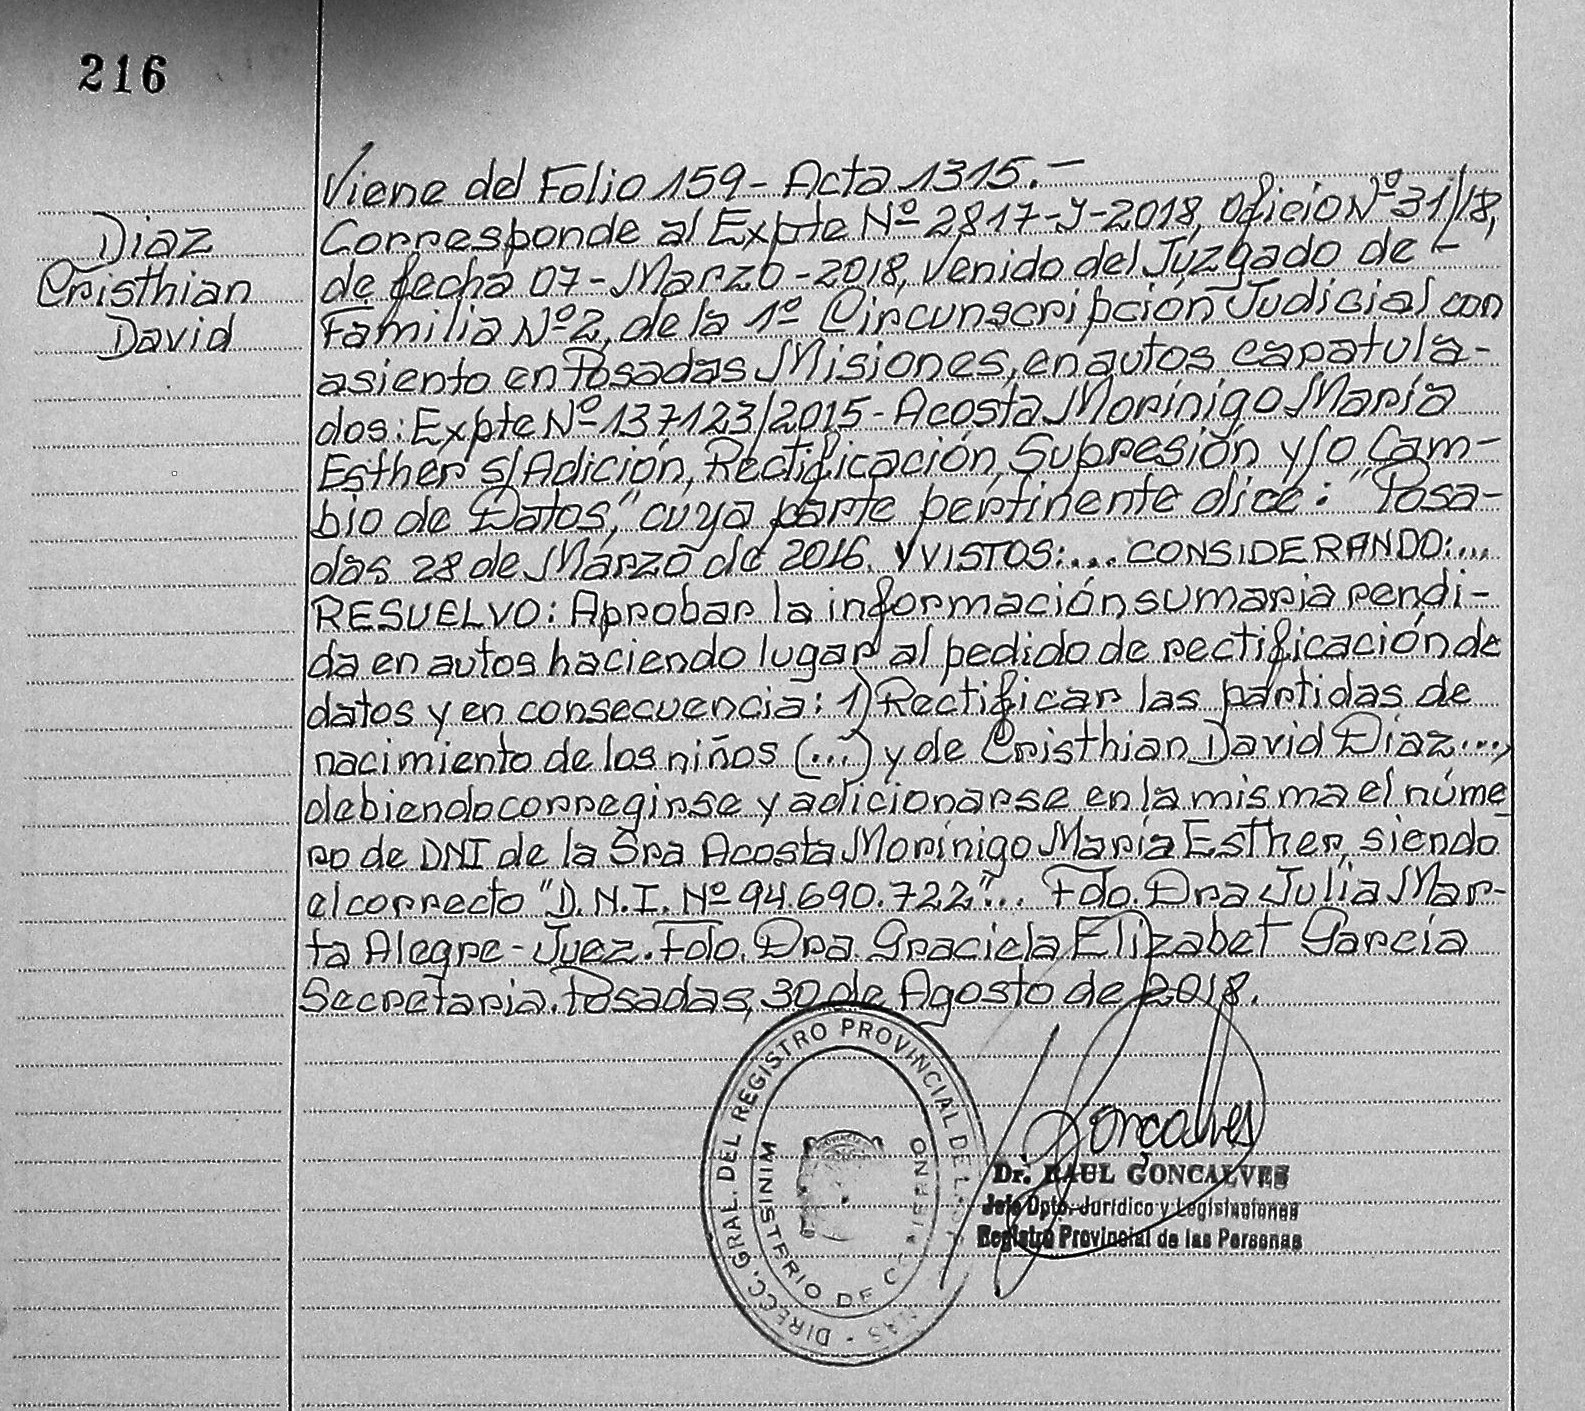 216
Diaz
Cristhian
David
Viene del Folio 159 - Acta 1315.-
Corresponde al Expte Nº 2817-J-2018, Oficio Nº 31/18,
de fecha 07-Marzo-2018, Venido del Juzgado de -
Familia Nº2, de la 1º Circunscripción Judicial con
asiento en Posadas Misiones, en autos caratula-
dos: Expte Nº 137123/2015 - Acosta Morínigo María
Esther s/Adición, Rectificación, Supresión y/o Cam-
bio de Datos," cuya parte pertinente dice: "Posa-
das 28 de Marzo de 2016. Y VISTOS:... CONSIDERANDO:...
RESUELVO: Aprobar la información sumaria rendi-
da en autos haciendo lugar al pedido de rectificación de
datos y en consecuencia: 1) Rectificar las partidas de
nacimiento de los niños (...) y de Cristhian David Diaz...,
debiendo corregirse y adicionarse en la misma el núme
ro de DNI de la Sra Acosta Morínigo María Esther, siendo
el correcto "D.N.I. Nº 94.690.722"... Fdo. Dra Julia Mar-
ta Alegre - Juez. Fdo. Dra. Graciela Elizabet García
Secretaria. Posadas, 30 de Agosto de 2018.
DIRECC. GRAL. DEL REGISTRO PROVINCIAL DE LAS
MINISTERIO DE GOBIERNO
Goncalves
Dr. RAUL GONCALVES
Jefe Dpto. Jurídico y Legislaciones
Registro Provincial de las Personas